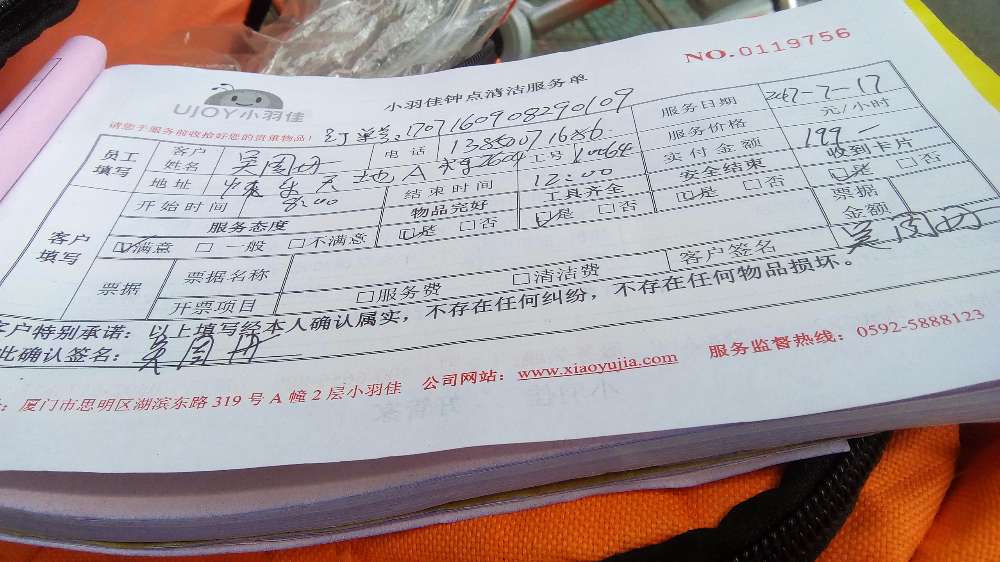 NO.0119756
UJOY小羽佳
小羽佳钟点清洁服务单
请您于服务前收拾好您的贵重物品!
订单号:1707160908290109
员工填写 客户姓名 吴周丹 电话 13850071686 服务日期 2017-7-17
地址 天地A 2604 工号 服务价格 元/小时
开始时间 8:00 结束时间 12:00 实付金额 199-
客户填写 服务态度 物品完好 工具齐全 安全结束 收到卡片
☑满意 □一般 □不满意 ☑是 □否 ☑是 □否 ☑是 □否 ☑是 □否
票据 票据名称 票据金额
开票项目 □服务费 □清洁费 客户签名 吴周丹
客户特别承诺:以上填写经本人确认属实,不存在任何纠纷,不存在任何物品损坏。
此确认签名:吴周丹
:厦门市思明区湖滨东路319号A幢2层小羽佳 公司网站:www.xiaoyujia.com 服务监督热线:0592-5888123